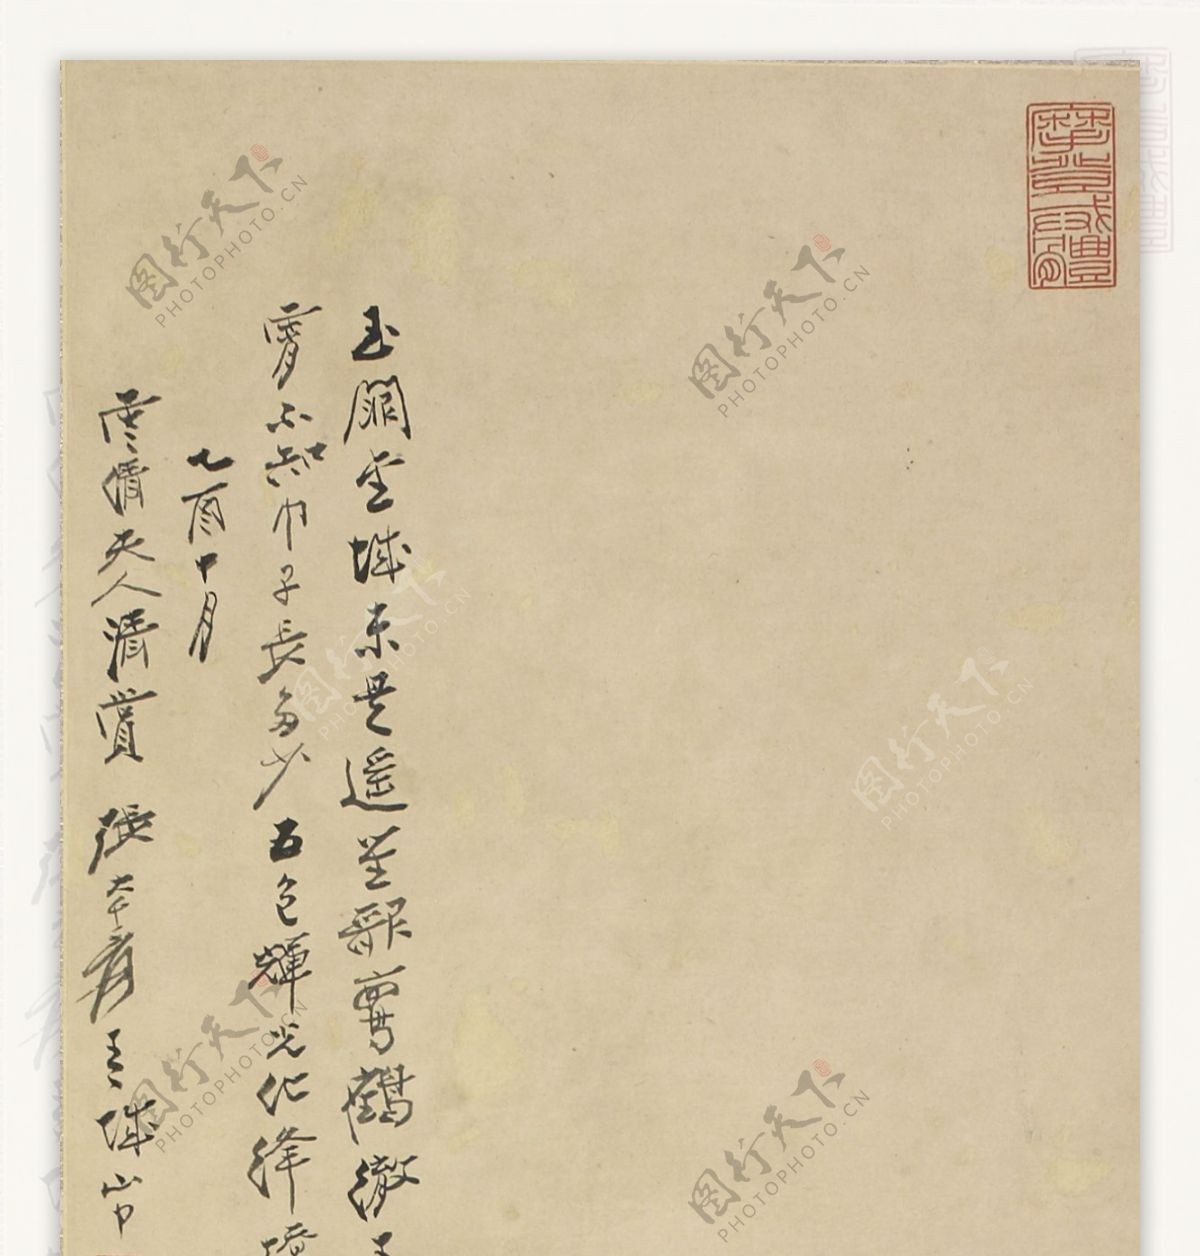 玉關金城未是遙 笙歌舞鶴徹
宵不知巾子長多少五色輝光化絳
乙酉十月
雲情夫人清賞 張大千爰青城山中
图行天下
PHOTOPHOTO.CN
图行天下
PHOTOPHOTO.CN
图行天下
PHOTOPHOTO.CN
图行天下
PHOTOPHOTO.CN
图行天下
PHOTOPHOTO.CN
图行天下
PHOTOPHOTO.CN